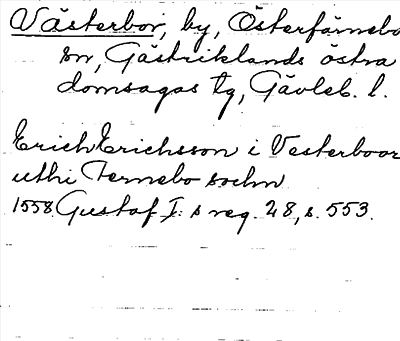 Västerbor, by, Österfärnebo
sn, Gästriklands östra
domsagas tg, Gävleb. l.
Erich Erichsson i Vesterboor
uthi Fernebo sochn
1558. Gustaf I:s reg. 28, s. 553.